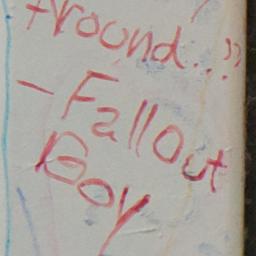 around..."
- Fall Out
Boy